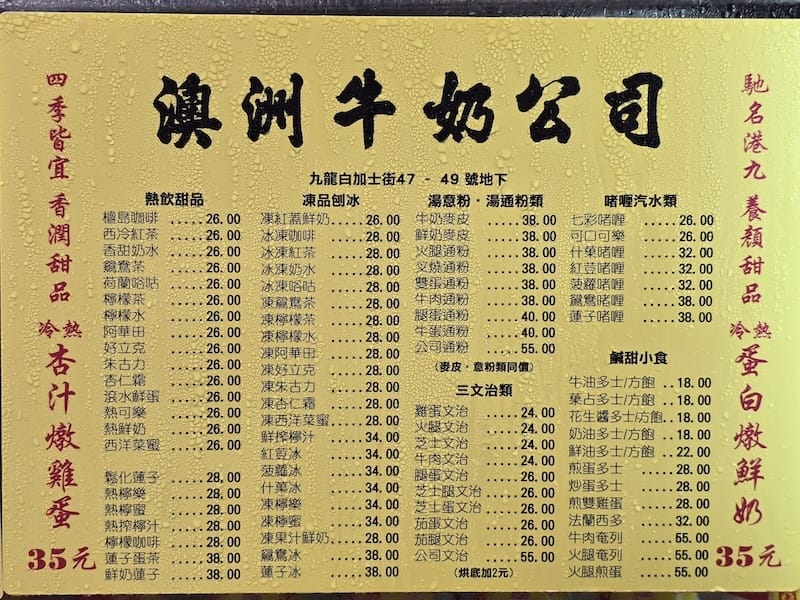 澳洲牛奶公司
九龍白加士街47 - 49 號地下
四季皆宜 香潤甜品
冷熱 杏汁燉雞蛋
35元
熱飲甜品
檀島咖啡 .....26.00
西冷紅茶 .....26.00
香甜奶水 .....26.00
鴛鴦茶 .....26.00
荷蘭哈咕 .....26.00
檸檬茶 .....26.00
檸檬水 .....26.00
阿華田 .....26.00
好立克 .....26.00
朱古力 .....26.00
杏仁霜 .....26.00
滾水鮮蛋 .....26.00
熱可樂 .....26.00
熱鮮奶 .....26.00
西洋菜蜜 .....26.00
鬆化蓮子 .....28.00
熱檸樂 .....28.00
熱檸蜜 .....28.00
熱搾檸汁 .....28.00
檸檬咖啡 .....28.00
蓮子蛋茶 .....38.00
鮮奶蓮子 .....38.00
凍品刨冰
凍紅蓋鮮奶.....26.00
冰凍咖啡 .....28.00
冰凍紅茶 .....28.00
冰凍奶水 .....28.00
冰凍哈咕 .....28.00
凍鴛鴦茶 .....28.00
凍檸檬茶 .....28.00
凍檸檬水 .....28.00
凍阿華田 .....28.00
凍好立克 .....28.00
凍朱古力 .....28.00
凍杏仁霜 .....28.00
凍西洋菜蜜.....28.00
鮮搾檸汁 .....34.00
紅荳冰 .....34.00
菠蘿冰 .....34.00
什菓冰 .....34.00
凍檸樂 .....34.00
凍檸蜜 .....34.00
凍果汁鮮奶.....28.00
鴛鴦冰 .....38.00
蓮子冰 .....38.00
湯意粉·湯通粉類
牛奶麥皮 .....38.00
鮮奶麥皮 .....38.00
火腿通粉 .....38.00
叉燒通粉 .....38.00
雙蛋通粉 .....38.00
牛肉通粉 .....38.00
腿蛋通粉 .....40.00
牛蛋通粉 .....40.00
公司通粉 .....55.00
(麥皮·意粉類同價)
三文治類
雞蛋文治 .....24.00
火腿文治 .....24.00
芝士文治 .....24.00
牛肉文治 .....24.00
腿蛋文治 .....26.00
芝士腿文治 .....26.00
芝士蛋文治 .....26.00
茄蛋文治 .....26.00
茄腿文治 .....26.00
公司文治 .....55.00
(烘底加2元)
啫喱汽水類
七彩啫喱 .....26.00
可口可樂 .....26.00
什菓啫喱 .....32.00
紅荳啫喱 .....32.00
菠蘿啫喱 .....32.00
鴛鴦啫喱 .....38.00
蓮子啫喱 .....38.00
鹹甜小食
牛油多士/方飽 ..18.00
菓占多士/方飽 ..18.00
花生醬多士/方飽..18.00
奶油多士/方飽 ..18.00
鮮油多士/方飽 ..22.00
煎蛋多士 .....28.00
炒蛋多士 .....28.00
煎雙雞蛋 .....28.00
法蘭西多 .....32.00
牛肉奄列 .....55.00
火腿奄列 .....55.00
火腿煎蛋 .....55.00
馳名港九 養顏甜品
冷熱 蛋白燉鮮奶
35元